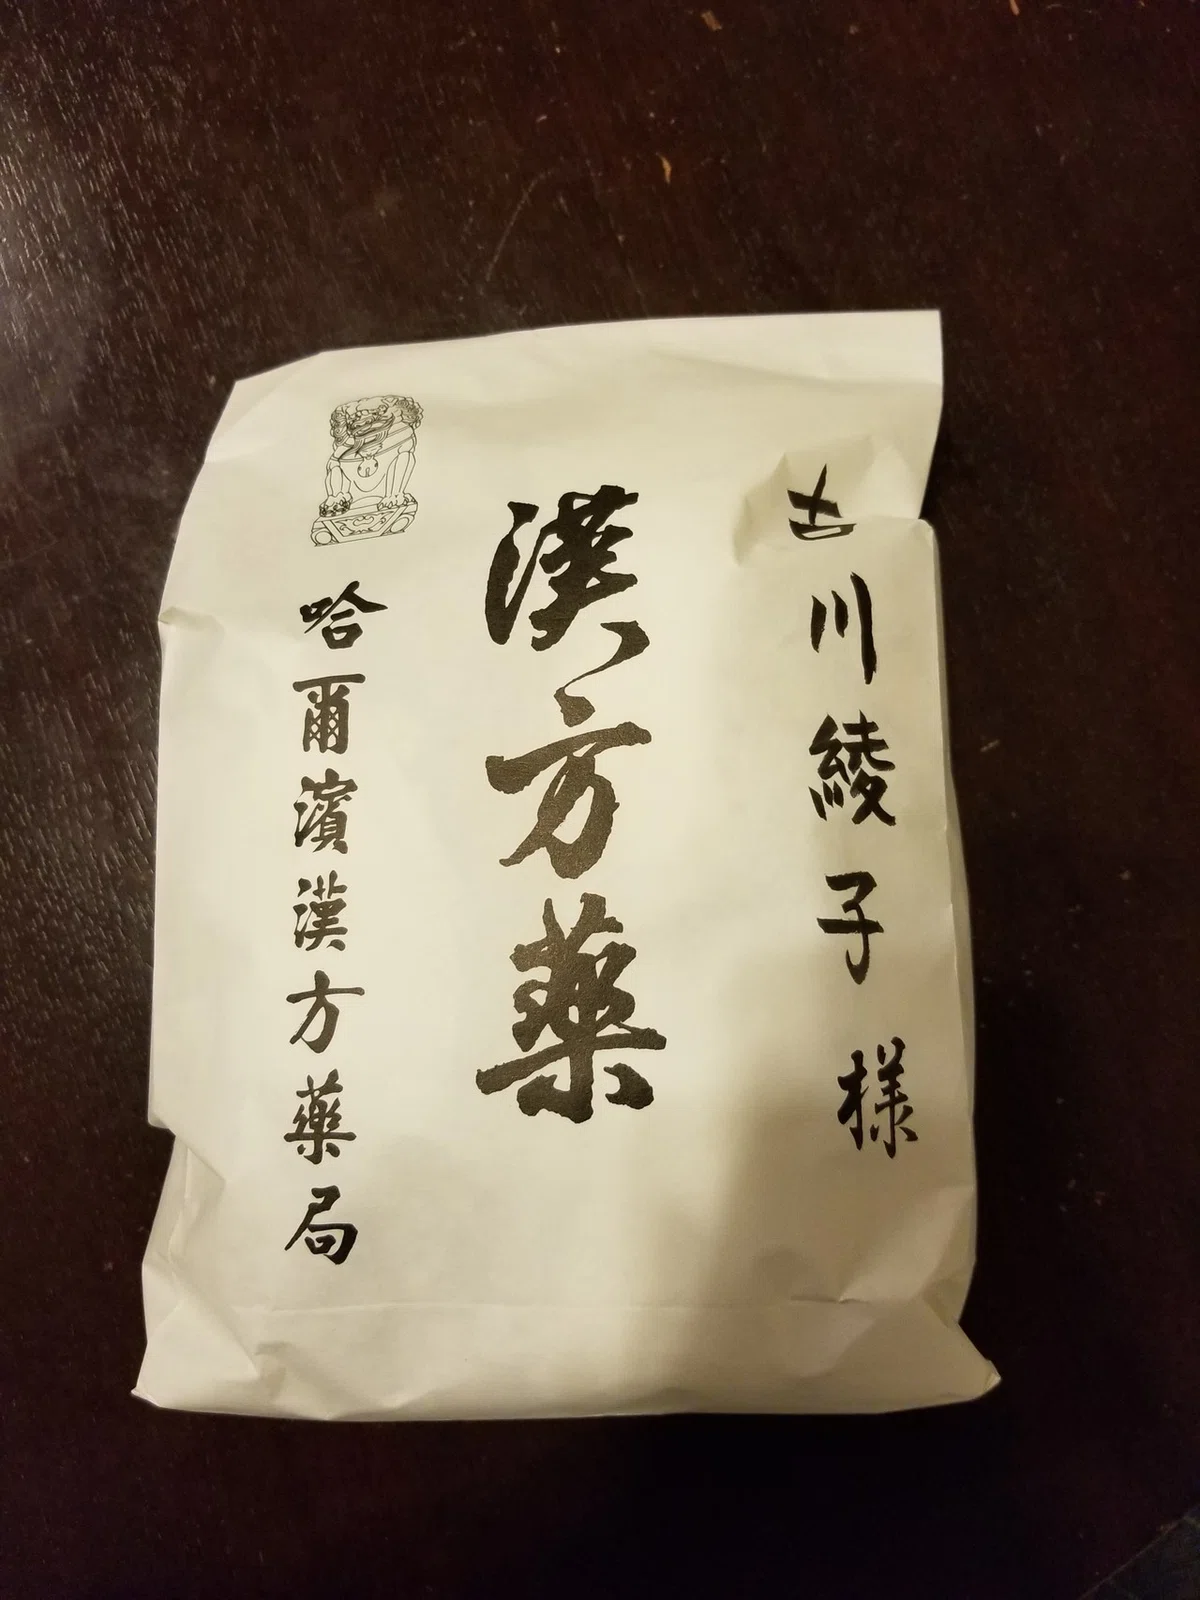 古川綾子様
漢方薬
哈爾濱漢方薬局